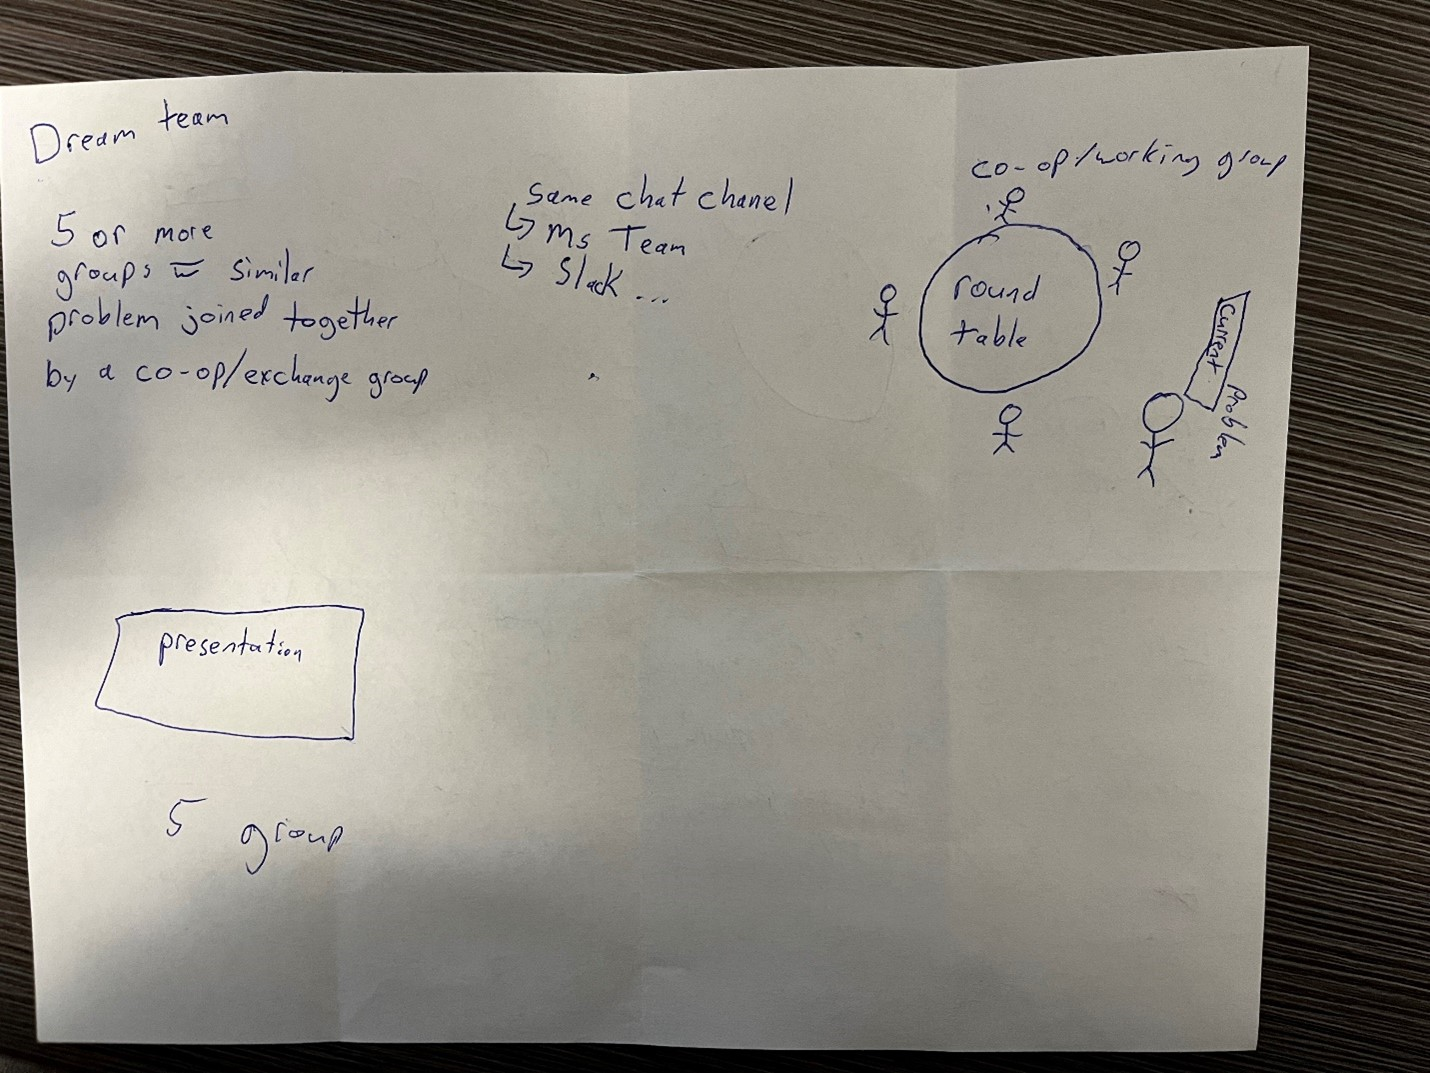 Dream team
5 or more
groups w similar
problem joined together
by a co-op/exchange group
same chat chanel
↳ Ms Team
↳ Slack ...
co-op/working group
round
table
Current
Problem
presentation
5 group